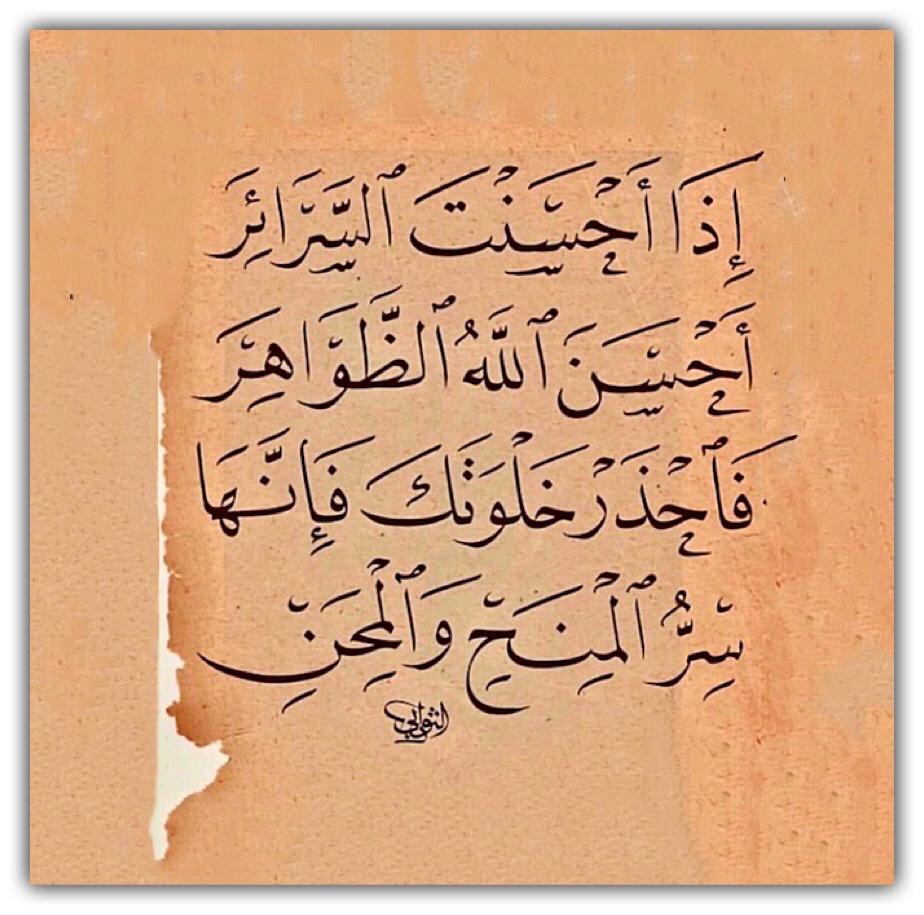 إِذَا أَحْسَنْتَ ٱلسَّرَائِرَ
أَحْسَنَ ٱللَّهُ ٱلظَّوَاهِرَ
فَٱحْذَرْ خَلْوَتَكَ فَإِنَّهَا
سِرُّ ٱلْمِنَحِ وَٱلْمِحَنِ